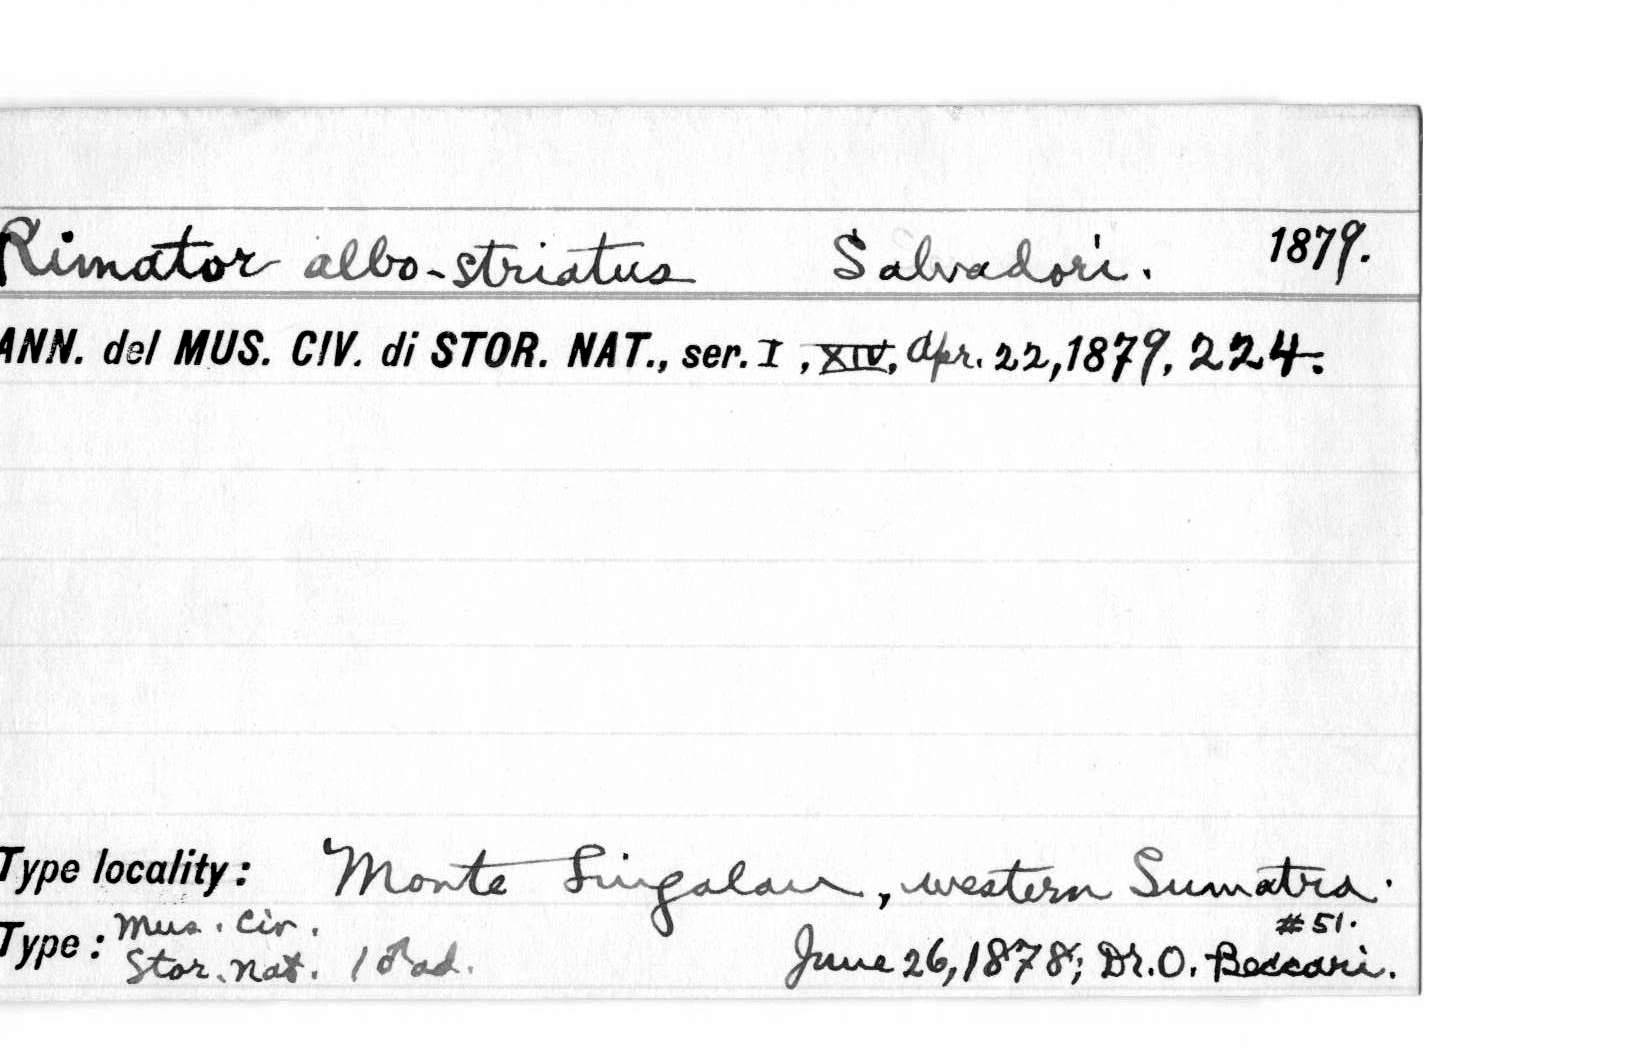 Rimator albo-striatus Salvadori. 1879.
ANN. del MUS. CIV. di STOR. NAT., ser. I, XIV, Apr. 22, 1879, 224.
Type locality: Monte Singalan, western Sumatra.
#51.
Type: Mus. Civ.
Stor. Nat. 1 ♂ ad. June 26, 1878; Dr. O. Beccari.